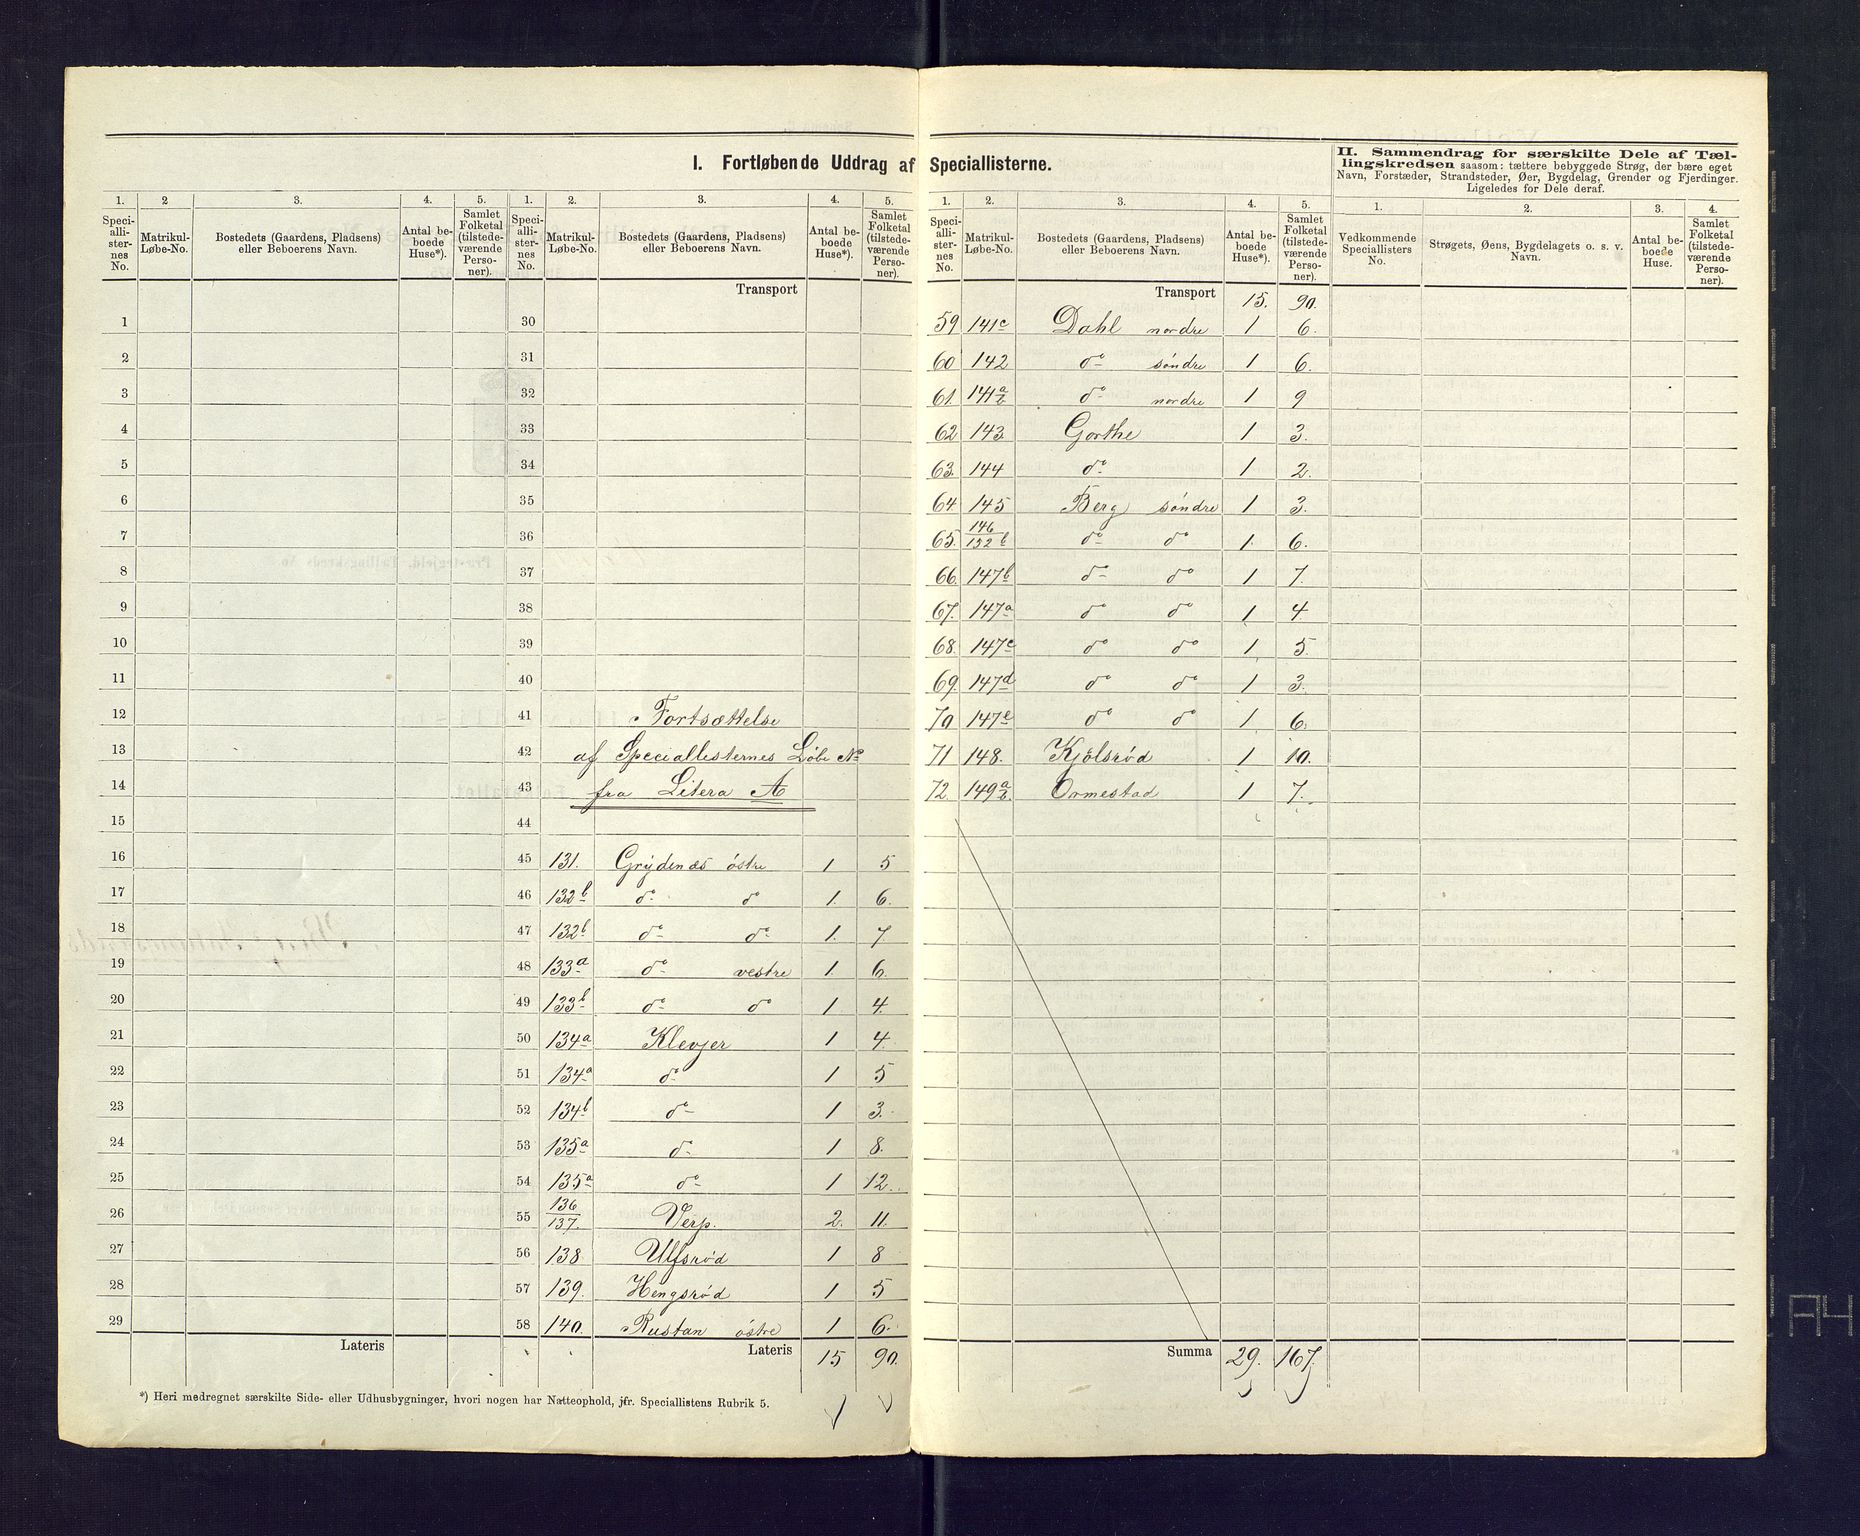 I. Fortløbende Uddrag af Speciallisterne.
II. Sammendrag for særskilte Dele af Tællingskredsen saasom: tættere bebyggede Strøg, der bære eget
Navn, Forstæder, Strandsteder, Øer, Bygdelag, Grender og Fjerdinger.
Ligeledes for Dele deraf.
1. 2 3. 4. 5. 1. 2. 3. 4. 5.
Speciallisternes No. Matrikul-Løbe-No. Bostedets (Gaardens, Pladsens) eller Beboerens Navn. Antal beboede Huse*). Samlet Folketal (tilstedeværende Personer). Speciallisternes No. Matrikul-Løbe-No. Bostedets (Gaardens, Pladsens) eller Beboerens Navn. Antal beboede Huse*). Samlet Folketal (tilstedeværende Personer).
Transport
1 30
2 31
3 32
4 33
5 34
6 35
7 36
8 37
9 38
10 39
11 40
12 41 Fortsættelse
13 42 af Speciallisternes Løbe No
14 43 fra Litera A
15 44
16 45 131. Grydenæs østre 1 5
17 46 132b do do 1. 6.
18 47 132b do do 1. 7
19 48 133a do vestre 1. 6.
20 49 133b do do 1 4.
21 50 134a Klevjer 1 4.
22 51 134a do 1 5
23 52 134b do 1 3.
24 53 135a do 1 8.
25 54 135a do 1 12.
26 55 136/137. Verp. 2. 11.
27 56 138 Ulfsrød 1 8
28 57 139. Hengsrød 1 5
29 58 140. Rustan østre 1 6.
Lateris Lateris 15 90.
*) Heri medregnet særskilte Side- eller Udhusbygninger, hvori nogen har Natteophold, jfr. Speciallistens Rubrik 5.
1. 2. 3. 4. 5. 1. 2. 3. 4.
Speciallisternes No. Matrikul-Løbe-No. Bostedets (Gaardens, Pladsens) eller Beboerens Navn. Antal beboede Huse*). Samlet Folketal (tilstedeværende Personer). Vedkommende Speciallisters No. Strøgets, Øens, Bygdelagets o. s. v. Navn. Antal beboede Huse. Samlet Folketal (tilstedeværende Personer).
Transport 15. 90.
59 141c Dahl nordre 1 6.
60 142 do søndre 1 6.
61. 141a/b do nordre 1 9
62 143 Gorthe 1 3.
63. 144 do 1 2.
64 145 Berg søndre 1 3.
65. 146/132b do do 1. 6.
66. 147b do do 1 7.
67. 147a do do 1 4
68. 147c do do 1 5.
69. 147d do do 1 3.
70 147e do do 1 6.
71 148. Kjølsrød 1 10.
72. 149a/b. Ormestad 1 7.
Summa 29. 167.
A4